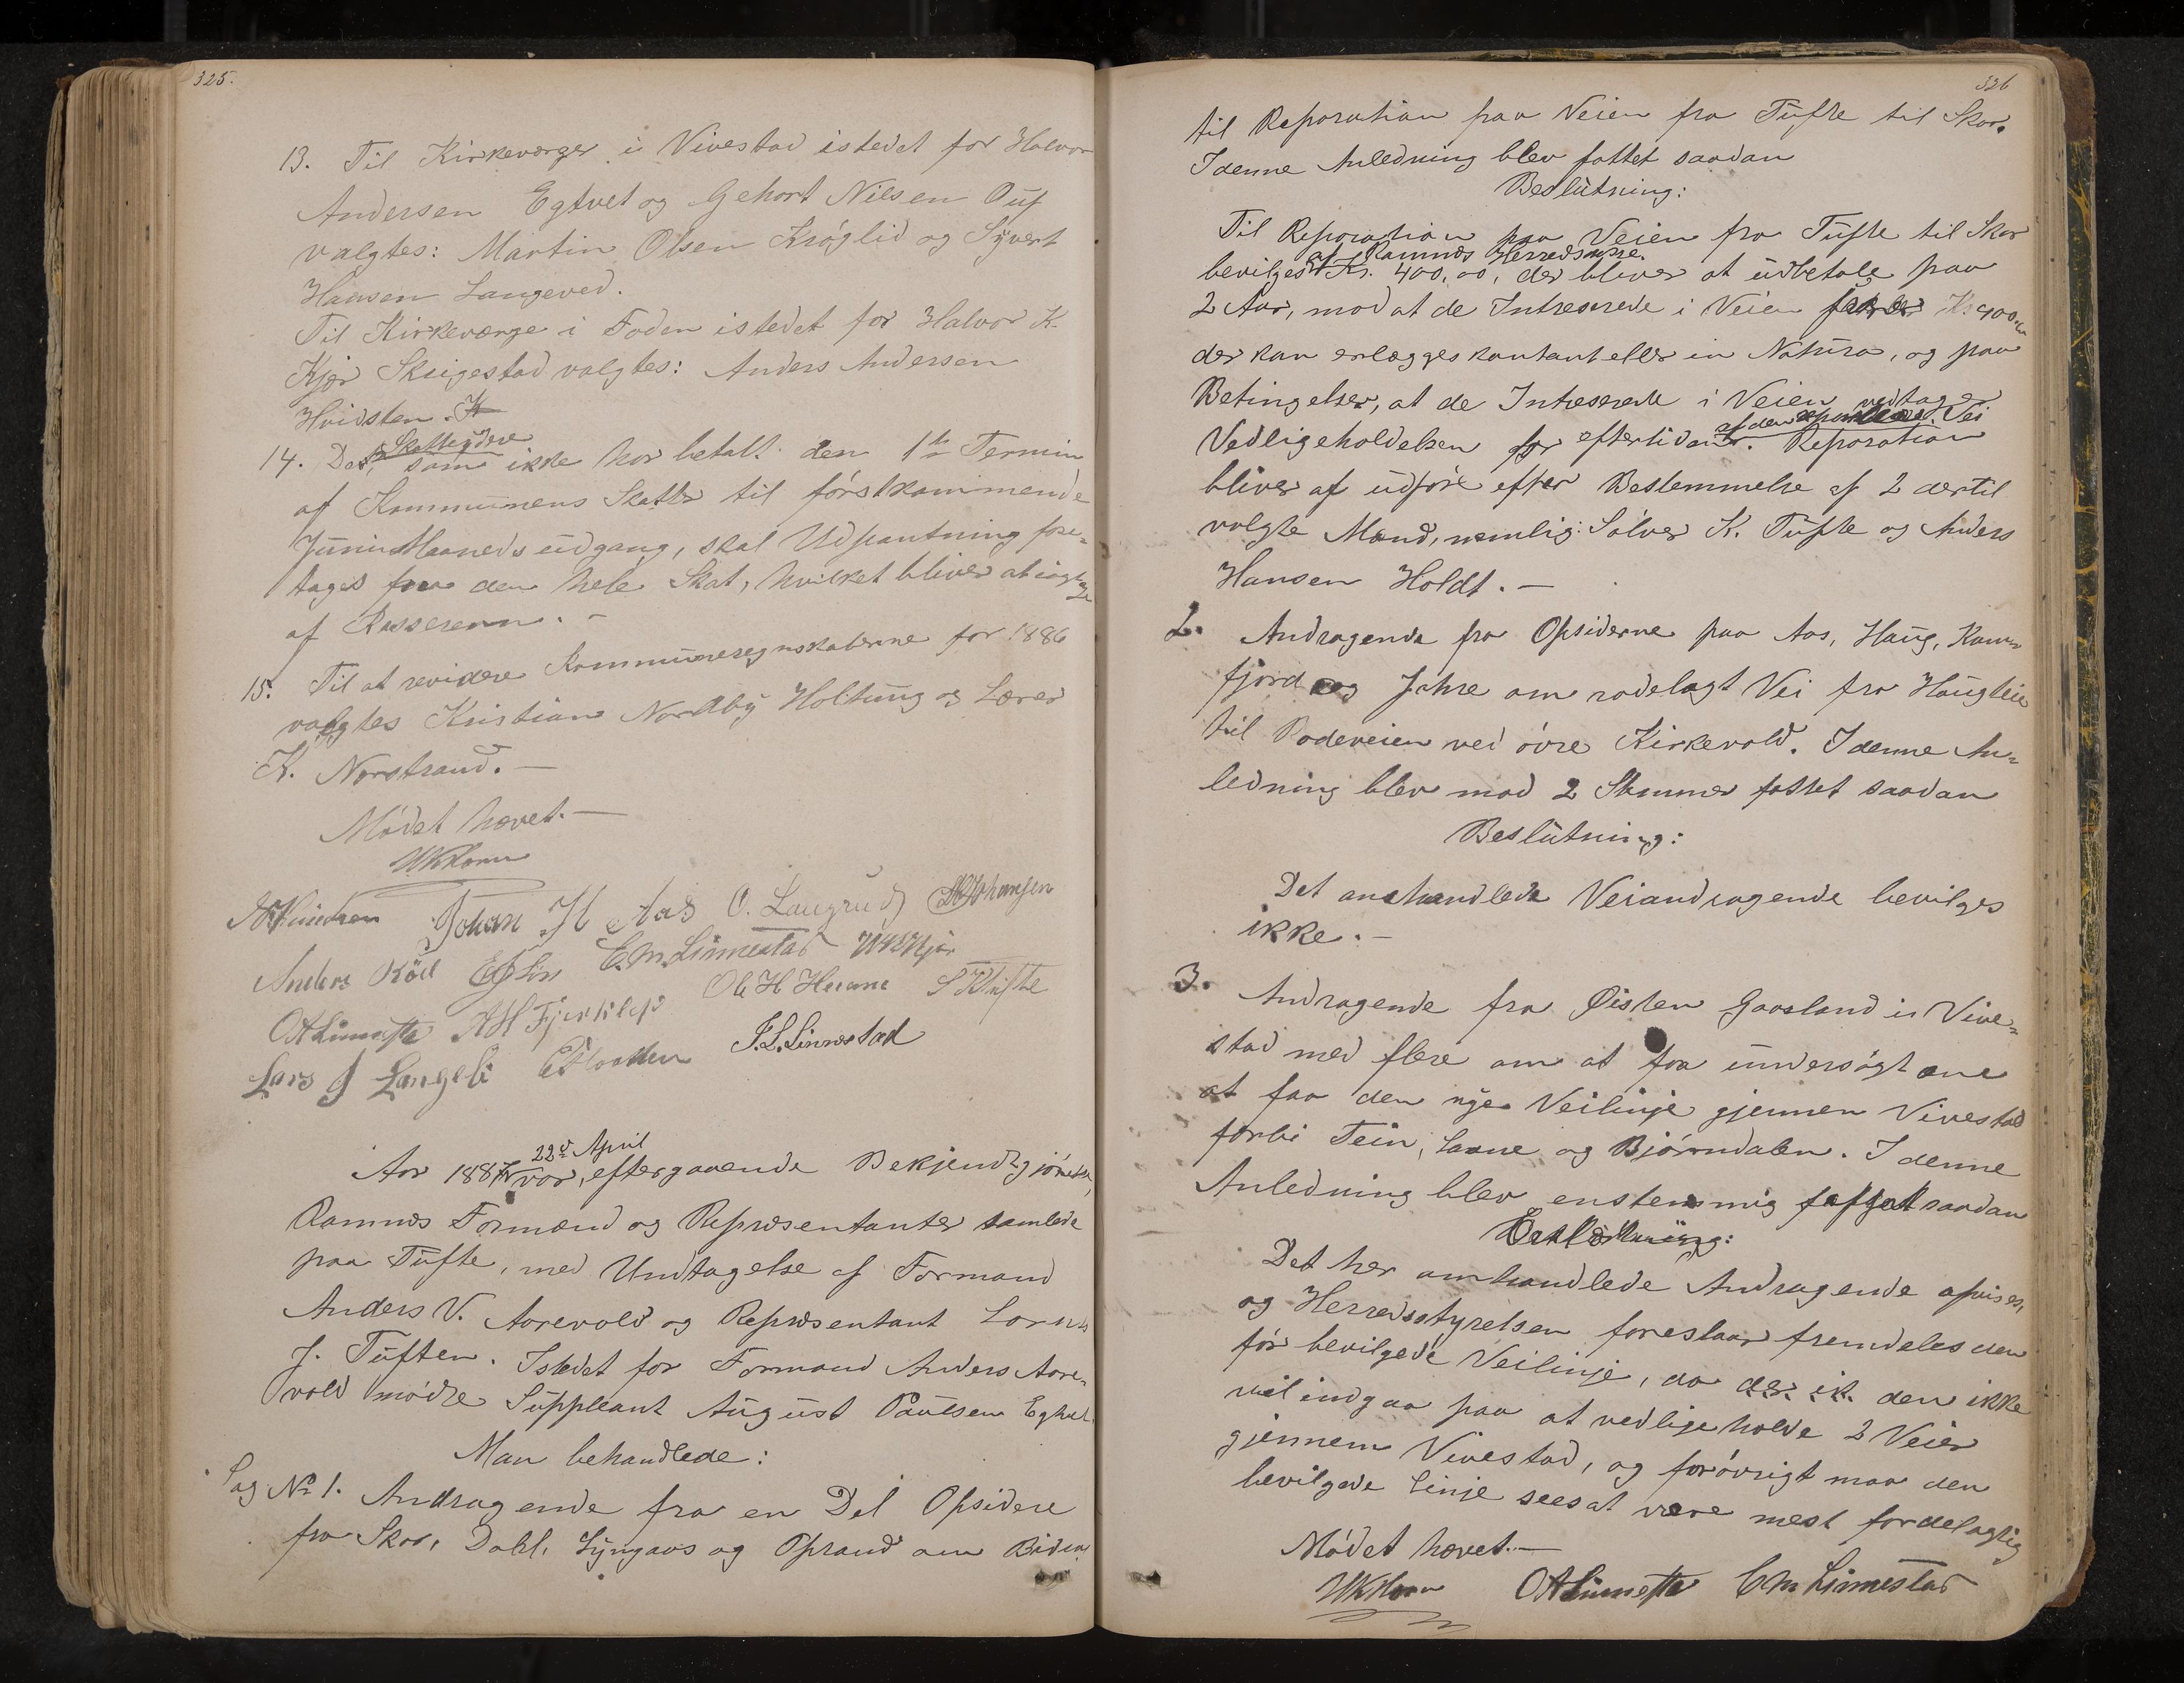 325.
13. Til Kirkeværger i Vivestad istedet for Halvor
Andersen Egtvet og Gehort Nilsen
valgtes: Martin Olsen Krøglid og Syvert
Hansen Langeved.
Til Kirkeværge i Foden istedet for Halvor K.
Kjær Skeigestad valgtes: Anders Andersen
Hvidsten.
14. De Skatteydere som ikke har betalt den 1ste Termin
af Kommunens Skatter til førstkommende
Juni Maaneds üdgang, skal Udpantning fore=
tages for den hele Skat, hvilket bliver at iagttage
af Kassereren. –
15. Til at revidere Kommuneregnskaberne for 1886
valgtes Kristian Nordby Holtung og Lærer
K. Norstrand. –
Mødet hævet. –
Johan H Aas O. Langrud Johansen
Anders C. M. Linnestad
Ole H Huane S K Tufte
Lars J Langeli J. L. Linnestad
Aar 1887 var 22d April, efter gaaende Bekjendtgjørelse,
Ramnes Formænd og Repræsentanter samlede
paa Tüfte, med Undtagelse af Formand
Anders V. Aarevold og Repræsentant Lorns
J. Tüften. Istedet for Formand Anders Aare=
vold mødte Süppleant Aügüst Paülsen Egtvet.
Man behandlede:
Sag № 1. Andragende fra en Del Opsidere
fra Skor, Dahl, Lyngaas og Oprand om Bidrag
326
til Reparation paa Veien fra Tüfte til Skor.
I denne Anledning blev fattet saadan
Beslütning:
Til Reparation paa Veien fra Tüfte til Skor
bevilges af Ramnes Herredskasse Kr. 400,00, der bliver at üdbetale paa
2 Aar, mod at de Intreserede i Veien Kr 400,00
der kan erlægges kontant eller in Natüra, og paa
Betingelse, at de Intreserede i Veien vedtager
Vedligeholdelsen for eftertiden af den Vei. Reparation
bliver at üdføre efter Bestemmelse af 2 dertil
valgte Mænd, nemlig: Sølver K. Tüfte og Anders
Hansen Holdt. –
2. Andragende fra Opsiderne paa Aas, Haüg, Kam=
fjord og Jahre om rodelagt Vei fra Haügleie
til Rodeveien ved øvre Kirkevold. I denne An=
ledning blev mod 2 Stemmer fattet saadan
Beslütning:
Det omhandlede Veiandragende bevilges
ikke. –
3. Andragende fra Øisten Gaasland i Vive=
stad med flere om at faa ündersøgt om
at faa den nye Veilinje gjennem Vivestad
forbi Tein, Saane og Bjørndalen. I denne
Anledning blev enstemmig fattet saadan
Beslütning:
Det her omhandlede Andragende afvises,
og Herredsstyrelsen foreslaar fremdeles den
før bevilgede Veilinje, da der ik. den ikke
vil indgaa paa at vedligeholde 2 Veier
gjennem Vivestad, og forøvrigt maa den
bevilgede Linje sees at være mest fordelagtig
Mødet hævet. –
C M Linnestad